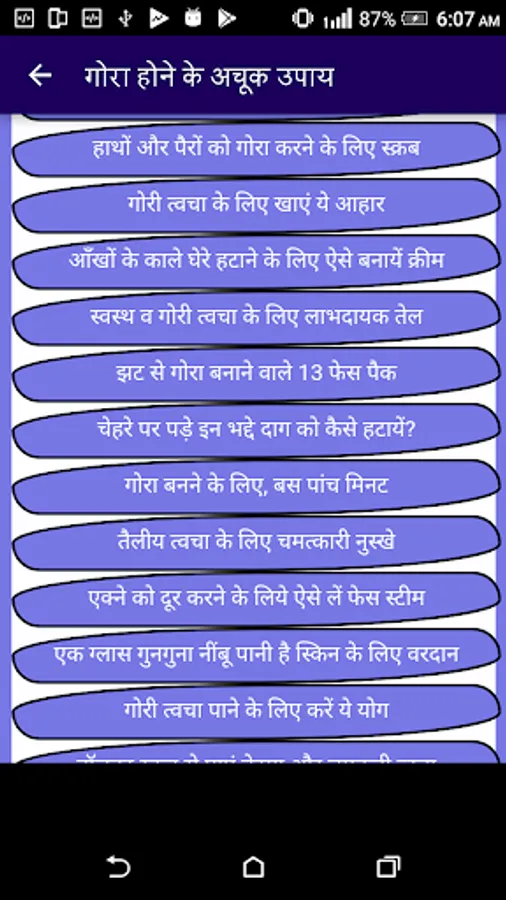 87% 6:07 AM
गोरा होने के अचूक उपाय
हाथों और पैरों को गोरा करने के लिए स्क्रब
गोरी त्वचा के लिए खाएं ये आहार
आँखों के काले घेरे हटाने के लिए ऐसे बनायें क्रीम
स्वस्थ व गोरी त्वचा के लिए लाभदायक तेल
झट से गोरा बनाने वाले 13 फेस पैक
चेहरे पर पड़े इन भद्दे दाग को कैसे हटायें?
गोरा बनने के लिए, बस पांच मिनट
तैलीय त्वचा के लिए चमत्कारी नुस्खे
एक्ने को दूर करने के लिये ऐसे लें फेस स्टीम
एक ग्लास गुनगुना नींबू पानी है स्किन के लिए वरदान
गोरी त्वचा पाने के लिए करें ये योग